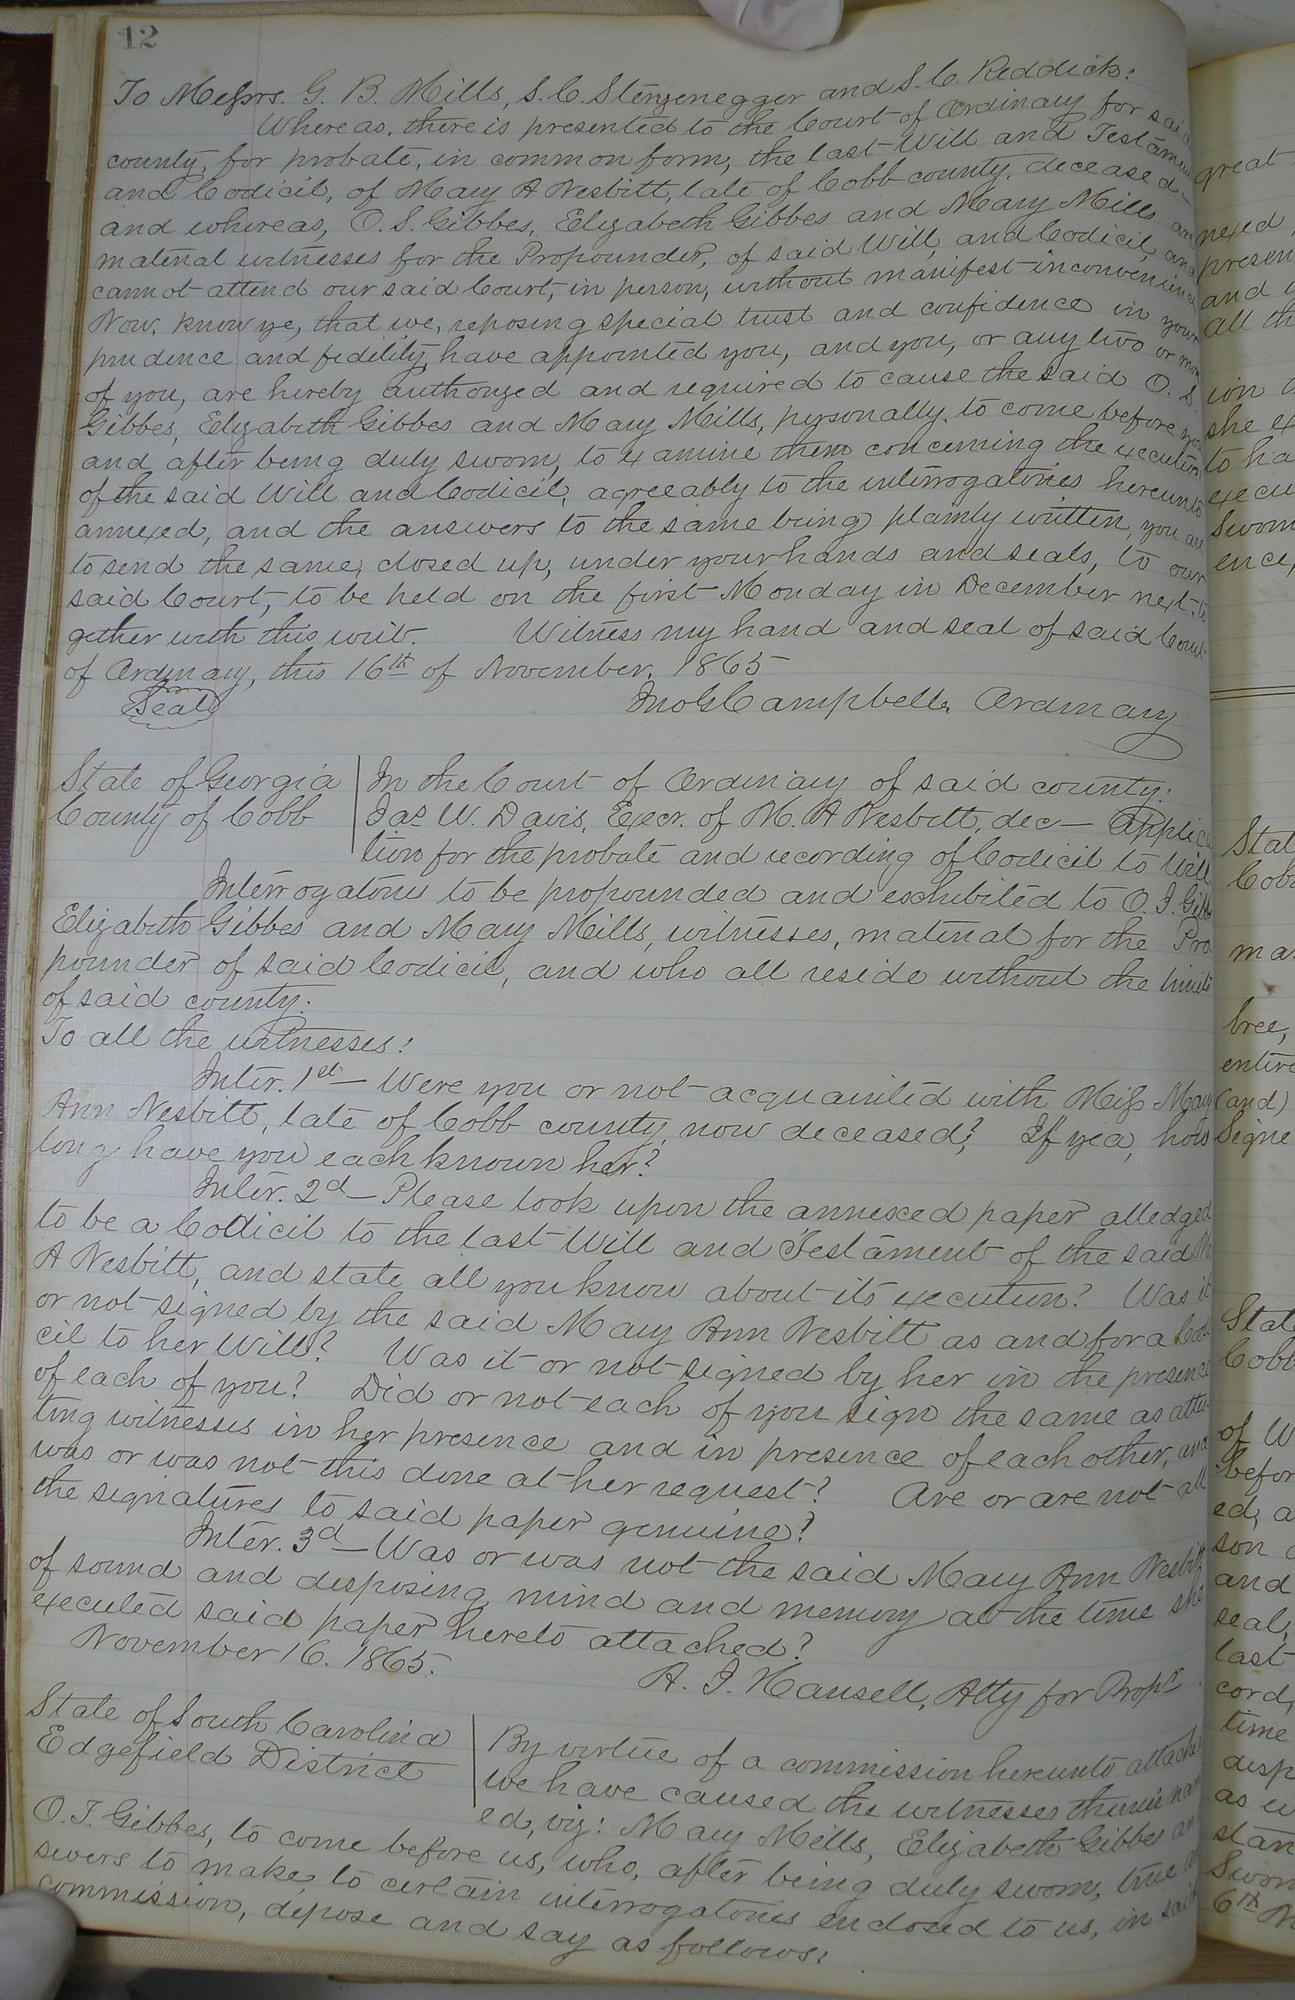 12
To Messrs. G. B. Mills, S. C. Sterzenegger and S. C. Reddick:
Whereas, there is presented to the Court of Ordinary for said
county, for probate, in common form, the last Will and Testament
and Codicil, of Mary A Nesbitt, late of Cobb county, deceased—
and whereas, O. S. Gibbes, Elizabeth Gibbes and Mary Mills are
material witnesses for the Propounder, of said Will, and Codicil, and
cannot attend our said Court, in person, without manifest inconvenience
Now, know ye, that we, reposing special trust and confidence in your
prudence and fidelity, have appointed you, and you, or any two or more
of you, are hereby authorized and required to cause the said O. S.
Gibbes, Elizabeth Gibbes and Mary Mills, personally, to come before you
and after being duly sworn, to examine them concerning the execution
of the said Will and Codicil, agreeably to the interrogatories hereunto
annexed, and the answers to the same being plainly written, you are
to send the same, closed up, under your hands and seals, to our
said Court, to be held on the first Monday in December next, to
gether with this writ. Witness my hand and seal of said Court
of Ordinary, this 16th of November, 1865
Seal Jno G Campbell, Ordinary
State of Georgia | In the Court of Ordinary of said county.
County of Cobb | Jas W. Davis, Execr. of M. A Nesbitt, dec— Applica
tion for the probate and recording of Codicil to Will
Interrogatories to be propounded and exhibited to O. J. Gibbes
Elizabeth Gibbes and Mary Mills, witnesses, material for the Pro
pounder of said Codicil, and who all reside without the limits
of said county.
To all the witnesses:
Inter. 1st— Were you or not acquainted with Miss Mary
Ann Nesbitt, late of Cobb county, now deceased? If yea, how
long have you each known her?
Inter. 2d— Please look upon the annexed paper alledged
to be a Codicil to the last Will and Testament of the said M
A Nesbitt, and state all you know about its execution? Was it
or not signed by the said Mary Ann Nesbitt as and for a Codi
cil to her Will? Was it or not signed by her in the presence
of each of you? Did or not each of you sign the same as attes-
ting witnesses in her presence and in presence of each other, and
was or was not this done at her request? Are or are not all
the signatures to said paper genuine?
Inter. 3d— Was or was not the said Mary Ann Nesbitt
of sound and disposing mind and memory at the time she
executed said paper hereto attached?
November 16. 1865.
A. J. Hansell, Atty for Propr.
State of South Carolina | By virtue of a commission hereunto attached
Edgefield District | we have caused the witnesses therein nam
ed, viz: Mary Mills, Elizabeth Gibbes and
O. J. Gibbes, to come before us, who, after being duly sworn, true an
swers to make, to certain interrogatories enclosed to us, in said
commission, depose and say as follows:
great
nexed
presen
and
all th
ion
she ex
to ha
execu
Sworn
ence,
Stat
Cobb
ma
bree,
entire
(and)
Signe
State
Cobb
of W
befor
ed, a
son
and
seal,
last
cord,
time
disp
as
stan
Sworn
6th